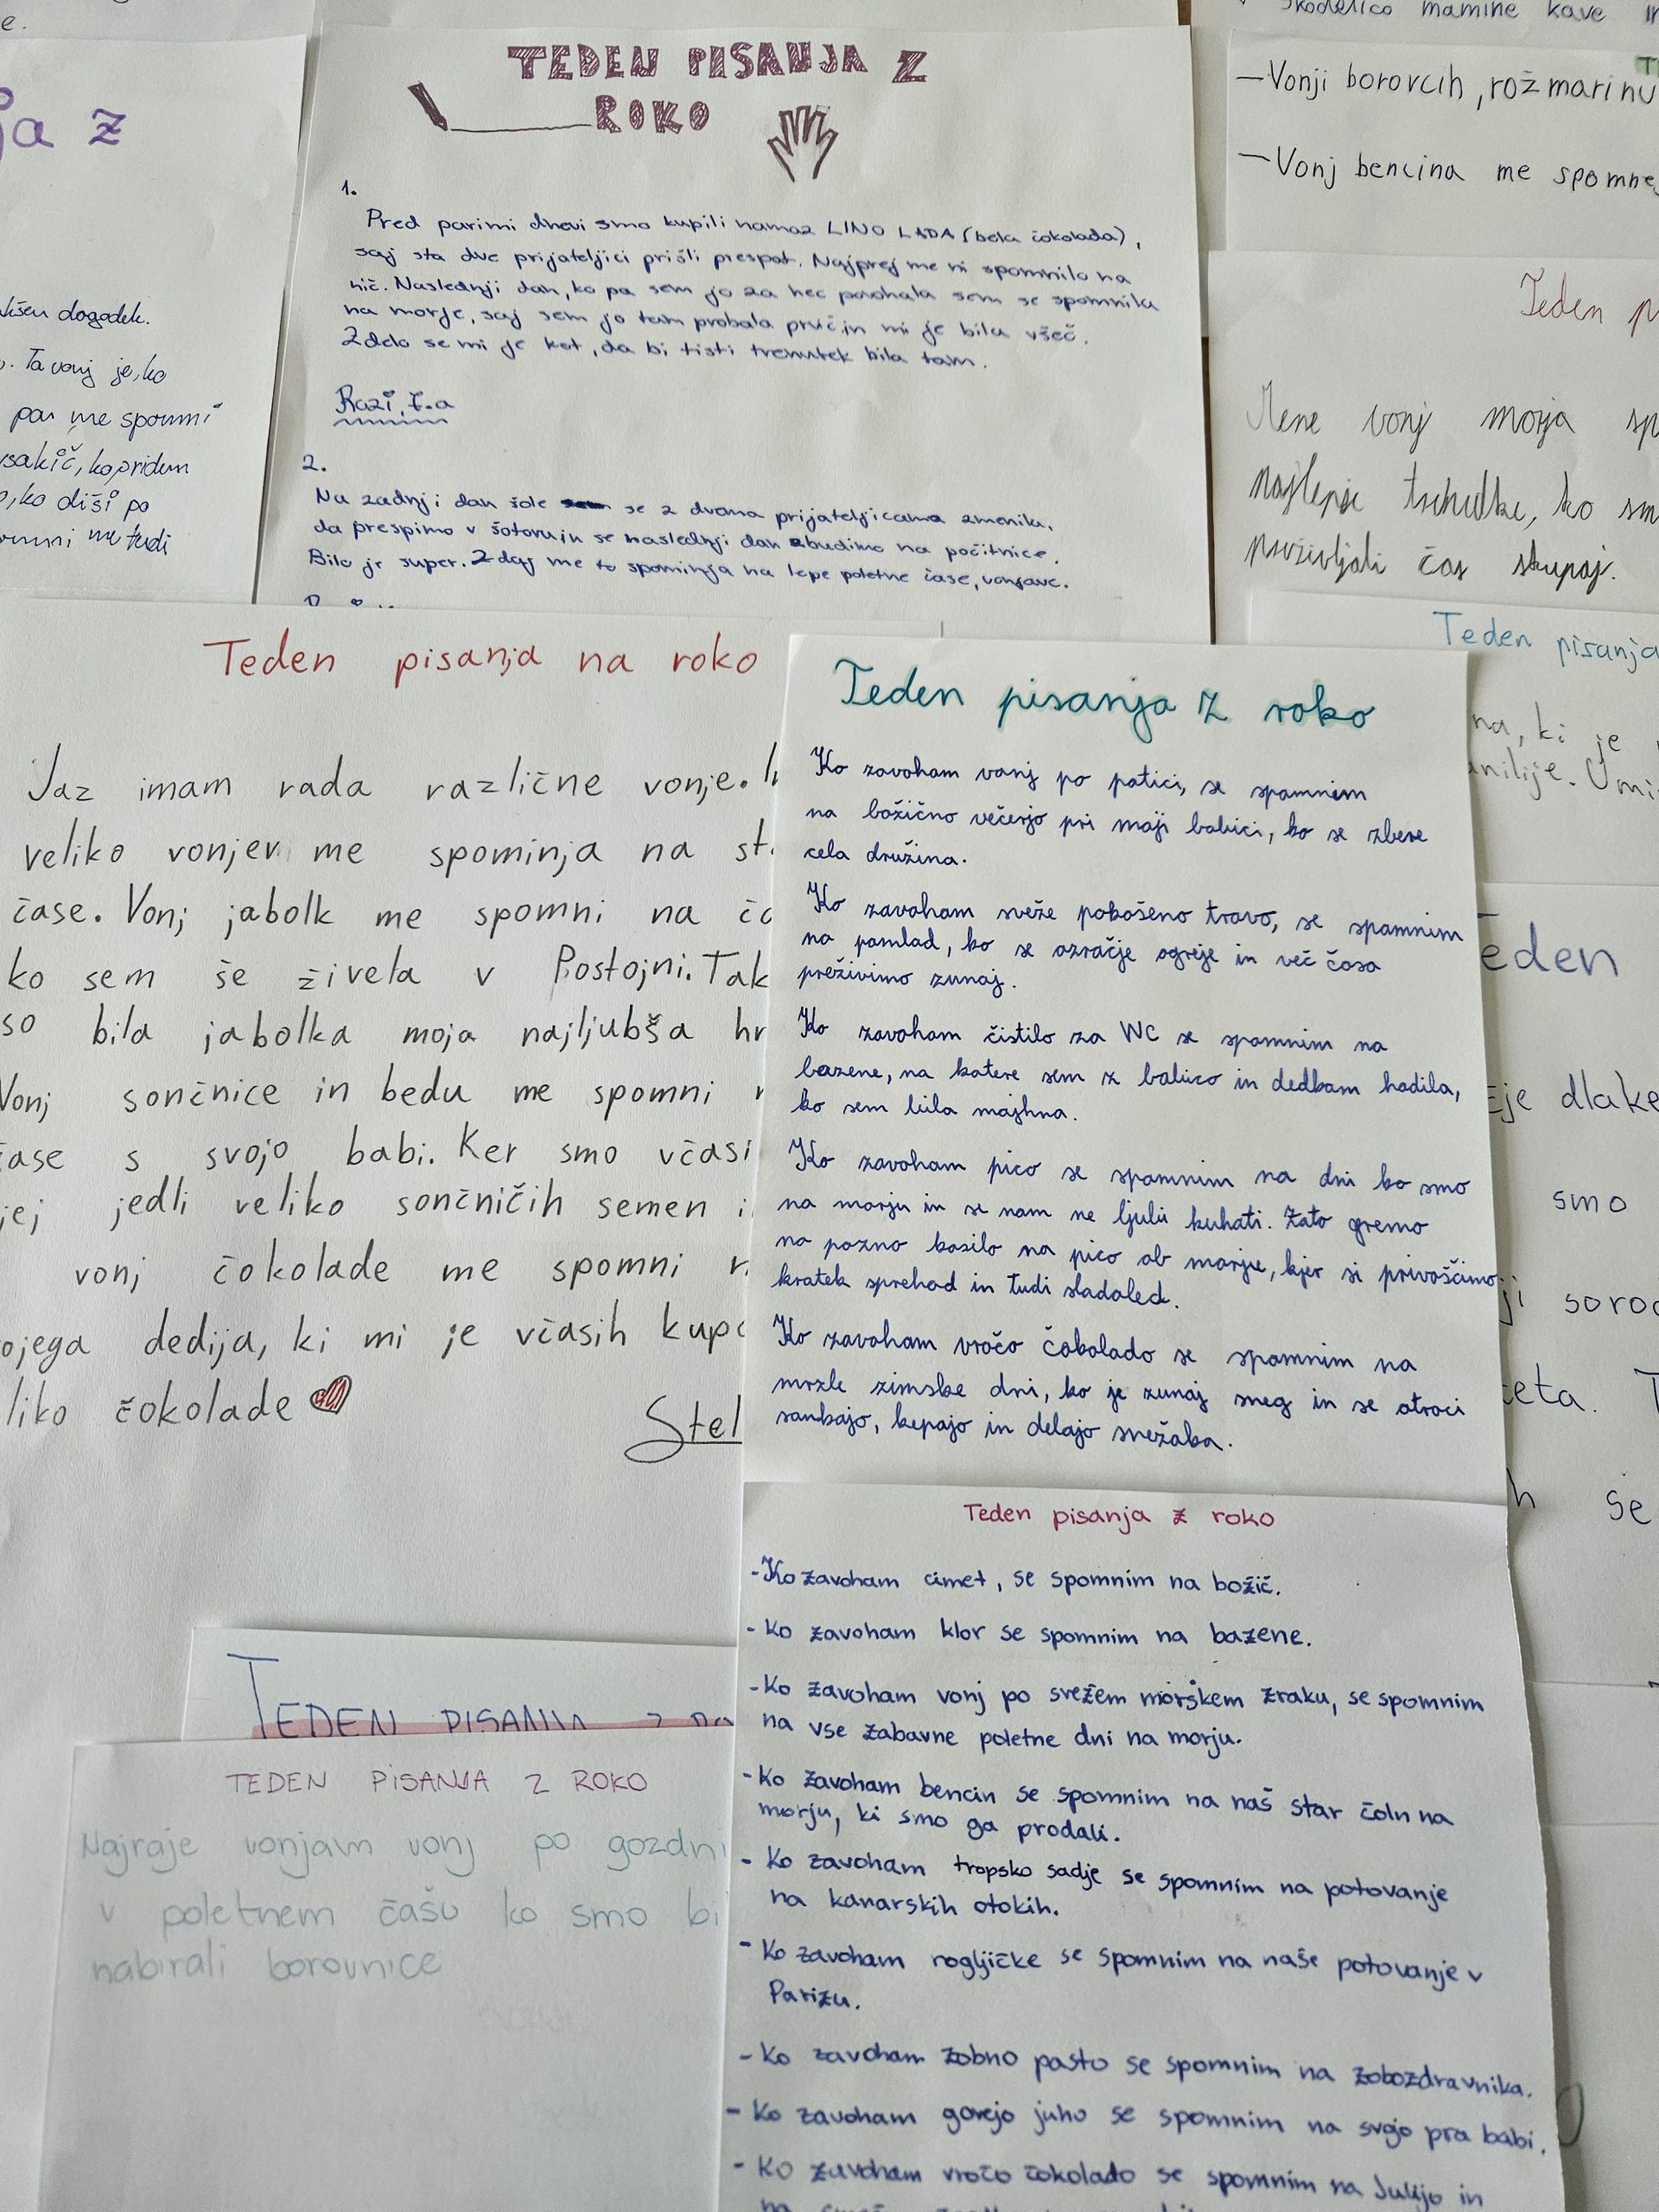 e.
ja z
dogodek.
Ta vonj je, ko
me spomni
vsakič, ko pridem
ko diši po
me tudi
TEDEN PISANJA Z
ROKO
1.
Pred parimi dnevi smo kupili namaz LINO LADA (bela čokolada),
saj sta dve prijateljici prišli prespat. Najprej me ni spomnilo na
nič. Naslednji dan, ko pa sem jo za hec povohala sem se spomnila
na morje, saj sem jo tam probala prvič in mi je bila všeč.
Zdelo se mi je kot, da bi tisti trenutek bila tam.
2.
Na zadnji dan šole se z dvema prijateljicama zmenila,
da prespimo v šotoru in se naslednji dan zbudimo na počitnice.
Bilo je super. Zdaj me to spominja na lepe poletne čase, vonjave.
skodelico mamine kave in
– Vonji borovcih, rožmarinu
– Vonj bencina me spomne
Teden p
Mene vonj morja sp
najlepše trenutke, ko sm
preživljali čas skupaj.
Teden pisanja
na, ki je
anilije.
Teden
dlake
smo
soro
ceta. T
h še
Teden pisanja na roko
Jaz imam rada različne vonje.
veliko vonjev me spominja na st
čase. Vonj jabolk me spomni na ča
ko sem še živela v Postojni. Tak
so bila jabolka moja najljubša hr
Vonj sončnice in bedu me spomni
čase s svojo babi. Ker smo včasi
jej jedli veliko sončničih semen i
vonj čokolade me spomni n
ojega dedija, ki mi je včasih kupo
liko čokolade
Stel
Teden pisanja z roko
Ko zavoham vonj po potici, se spomnim
na božično večerjo pri moji babici, ko se zbere
cela družina.
Ko zavoham sveže pokošeno travo, se spomnim
na pomlad, ko se ozračje ogreje in več časa
preživimo zunaj.
Ko zavoham čistilo za WC se spomnim na
bazene, na katere sem z babico in dedkom hodila,
ko sem bila majhna.
Ko zavoham pico se spomnim na dni ko smo
na morju in se nam ne ljubi kuhati. Zato gremo
na pozno kosilo na pico ob morju, kjer si privoščimo
kratek sprehod in tudi sladoled.
Ko zavoham vročo čokolado se spomnim na
mrzle zimske dni, ko je zunaj sneg in se otroci
sankajo, kepajo in delajo snežaka.
TEDEN PISANJA Z RO
TEDEN PISANJA Z ROKO
Najraje vonjam vonj po gozdni
v poletnem čašu ko smo bi
nabirali borovnice
Teden pisanja z roko
- Ko zavoham cimet, se spomnim na božič.
- Ko zavoham klor se spomnim na bazene.
- Ko zavoham vonj po svežem morskem zraku, se spomnim
na vse zabavne poletne dni na morju.
- Ko zavoham bencin se spomnim na naš star čoln na
morju, ki smo ga prodali.
- Ko zavoham tropsko sadje se spomnim na potovanje
na kanarskih otokih.
- Ko zavoham rogljičke se spomnim na naše potovanje v
Parizu.
- Ko zavoham zobno pasto se spomnim na zobozdravnika.
- Ko zavoham govejo juho se spomnim na svojo pra babi.
- Ko zavoham vročo čokolado se spomnim na Julijo in